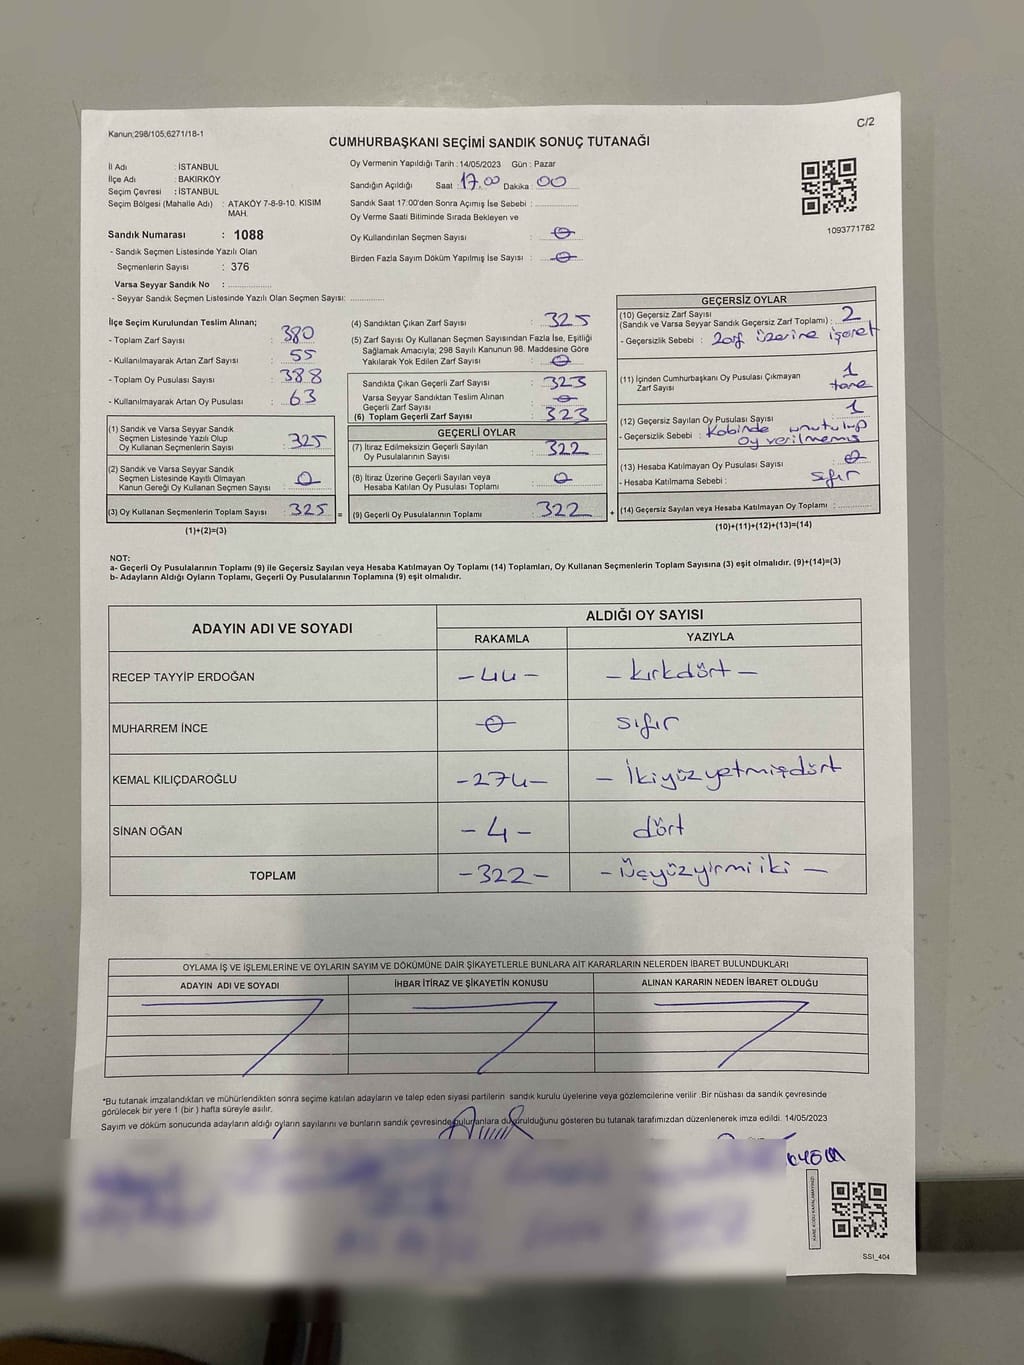 Kanun;298/105;6271/18-1
C/2
CUMHURBAŞKANI SEÇİMİ SANDIK SONUÇ TUTANAĞI
İl Adı : İSTANBUL
İlçe Adı : BAKIRKÖY
Seçim Çevresi : İSTANBUL
Seçim Bölgesi (Mahalle Adı) : ATAKÖY 7-8-9-10. KISIM
MAH.
Sandık Numarası : 1088
- Sandık Seçmen Listesinde Yazılı Olan
Seçmenlerin Sayısı : 376
Varsa Seyyar Sandık No : ....................
- Seyyar Sandık Seçmen Listesinde Yazılı Olan Seçmen Sayısı: ..............
Oy Vermenin Yapıldığı Tarih : 14/05/2023 Gün : Pazar
Sandığın Açıldığı Saat : 17.00 Dakika : 00
Sandık Saat 17:00'den Sonra Açımış İse Sebebi : ....................
Oy Verme Saati Bitiminde Sırada Bekleyen ve
Oy Kullandırılan Seçmen Sayısı : 0
Birden Fazla Sayım Döküm Yapılmış İse Sayısı : 0
1093771782
İlçe Seçim Kurulundan Teslim Alınan;
- Toplam Zarf Sayısı : 380
- Kullanılmayarak Artan Zarf Sayısı : 55
- Toplam Oy Pusulası Sayısı : 388
- Kullanılmayarak Artan Oy Pusulası : 63
(1) Sandık ve Varsa Seyyar Sandık
Seçmen Listesinde Yazılı Olup
Oy Kullanan Seçmenlerin Sayısı : 325
(2) Sandık ve Varsa Seyyar Sandık
Seçmen Listesinde Kayıtlı Olmayan
Kanun Gereği Oy Kullanan Seçmen Sayısı : 0
(3) Oy Kullanan Seçmenlerin Toplam Sayısı : 325 =
(1)+(2)=(3)
(4) Sandıktan Çıkan Zarf Sayısı : 325
(5) Zarf Sayısı Oy Kullanan Seçmen Sayısından Fazla İse, Eşitliği
Sağlamak Amacıyla; 298 Sayılı Kanunun 98. Maddesine Göre
Yakılarak Yok Edilen Zarf Sayısı : 0
Sandıkta Çıkan Geçerli Zarf Sayısı : 323
Varsa Seyyar Sandıktan Teslim Alınan
Geçerli Zarf Sayısı : 0
(6) Toplam Geçerli Zarf Sayısı : 323
GEÇERLİ OYLAR
(7) İtiraz Edilmeksizin Geçerli Sayılan
Oy Pusulalarının Sayısı : 322
(8) İtiraz Üzerine Geçerli Sayılan veya
Hesaba Katılan Oy Pusulası Toplamı : 0
(9) Geçerli Oy Pusulalarının Toplamı : 322 +
GEÇERSİZ OYLAR
(10) Geçersiz Zarf Sayısı
(Sandık ve Varsa Seyyar Sandık Geçersiz Zarf Toplamı) : 2
- Geçersizlik Sebebi : Zarf üzerine işaret
(11) İçinden Cumhurbaşkanı Oy Pusulası Çıkmayan
Zarf Sayısı : 1 tane
(12) Geçersiz Sayılan Oy Pusulası Sayısı : 1
- Geçersizlik Sebebi : Kabinde unutulup
oy verilmemiş
(13) Hesaba Katılmayan Oy Pusulası Sayısı : 0
- Hesaba Katılmama Sebebi : sıfır
(14) Geçersiz Sayılan veya Hesaba Katılmayan Oy Toplamı : ..............
(10)+(11)+(12)+(13)=(14)
NOT:
a- Geçerli Oy Pusulalarının Toplamı (9) ile Geçersiz Sayılan veya Hesaba Katılmayan Oy Toplamı (14) Toplamları, Oy Kullanan Seçmenlerin Toplam Sayısına (3) eşit olmalıdır. (9)+(14)=(3)
b- Adayların Aldığı Oyların Toplamı, Geçerli Oy Pusulalarının Toplamına (9) eşit olmalıdır.
ADAYIN ADI VE SOYADI
ALDIĞI OY SAYISI
RAKAMLA YAZIYLA
RECEP TAYYİP ERDOĞAN - 44 - - kırkdört -
MUHARREM İNCE 0 sıfır
KEMAL KILIÇDAROĞLU - 274 - - İkiyüzyetmişdört
SİNAN OĞAN - 4 - dört
TOPLAM - 322 - - Üçyüzyirmiiki -
OYLAMA İŞ VE İŞLEMLERİNE VE OYLARIN SAYIM VE DÖKÜMÜNE DAİR ŞİKAYETLERLE BUNLARA AİT KARARLARIN NELERDEN İBARET BULUNDUKLARI
ADAYIN ADI VE SOYADI İHBAR İTİRAZ VE ŞİKAYETİN KONUSU ALINAN KARARIN NEDEN İBARET OLDUĞU
*Bu tutanak imzalandıktan ve mühürlendikten sonra seçime katılan adayların ve talep eden siyasi partilerin sandık kurulu üyelerine veya gözlemcilerine verilir .Bir nüshası da sandık çevresinde
görülecek bir yere 1 (bir ) hafta süreyle asılır.
Sayım ve döküm sonucunda adayların aldığı oyların sayılarını ve bunların sandık çevresinde bulunanlara duyurulduğunu gösteren bu tutanak tarafımızdan düzenlenerek imza edildi. 14/05/2023
SSI_404